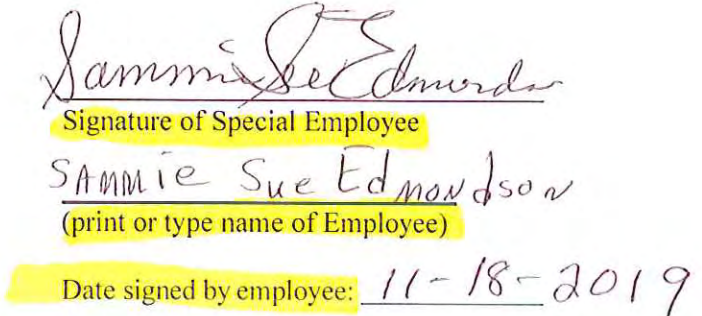 Sammie Sue Edmondson
Signature of Special Employee
SAMMIE Sue Edmondson
(print or type name of Employee)
Date signed by employee: 11-18-2019